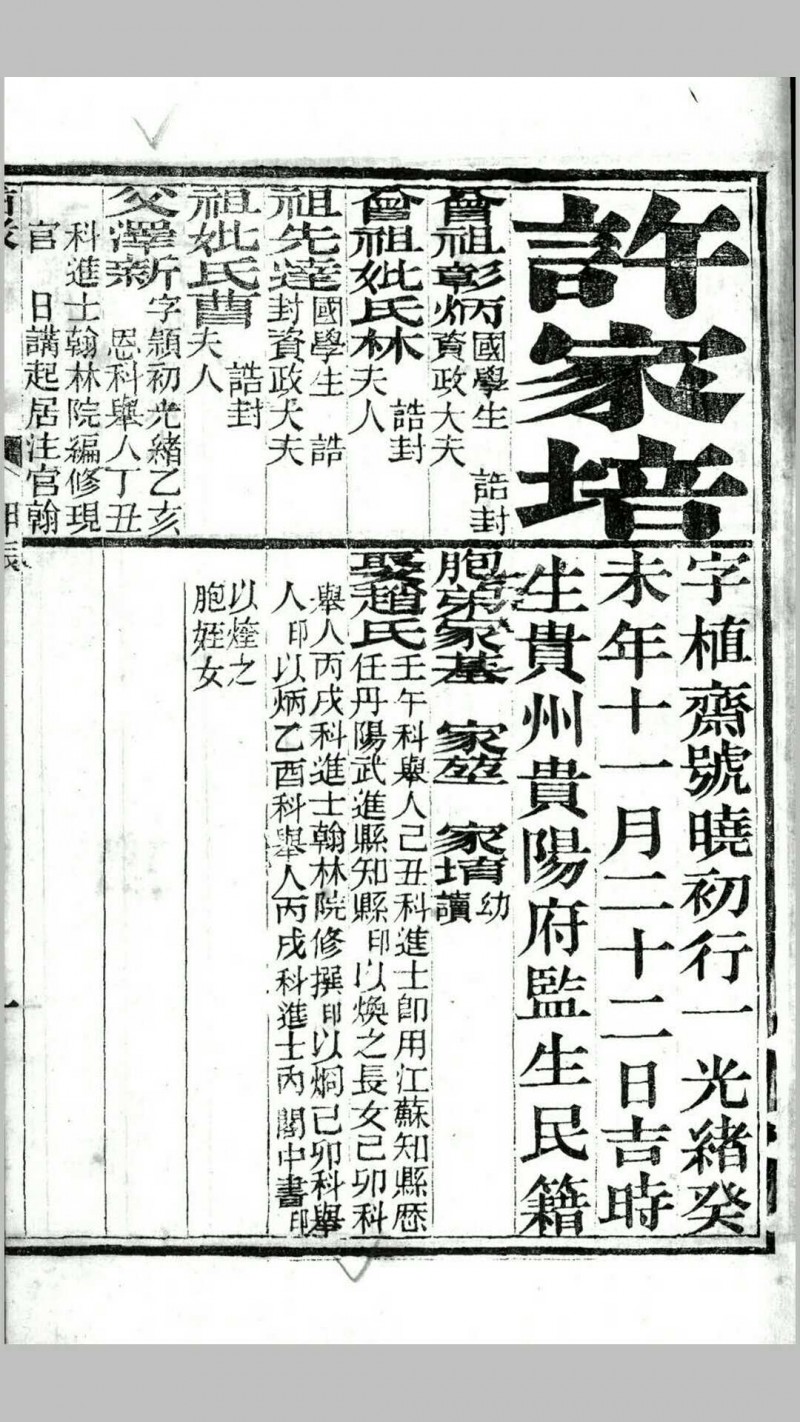 許家培
字植齋號曉初行一光緒癸
未年十一月二十二日吉時
生貴州貴陽府監生民籍
曾祖彰炳國學生 誥封
資政大夫
曾祖妣氏林 誥封
夫人
祖先達國學生 誥
封資政大夫
祖妣氏曹 誥封
夫人
父澤新字穎初光緒乙亥
恩科舉人丁丑
科進士翰林院編修現
官 日講起居注官翰
胞弟家基 家堃 家堉幼
讀
娶趙氏壬午科舉人己丑科進士即用江蘇知縣歷
任丹陽武進縣知縣印以煥之長女己卯科
舉人丙戌科進士翰林院修撰印以炯己卯科舉
人印以炳乙酉科舉人丙戌科進士內閣中書印
以煃之
胞姪女